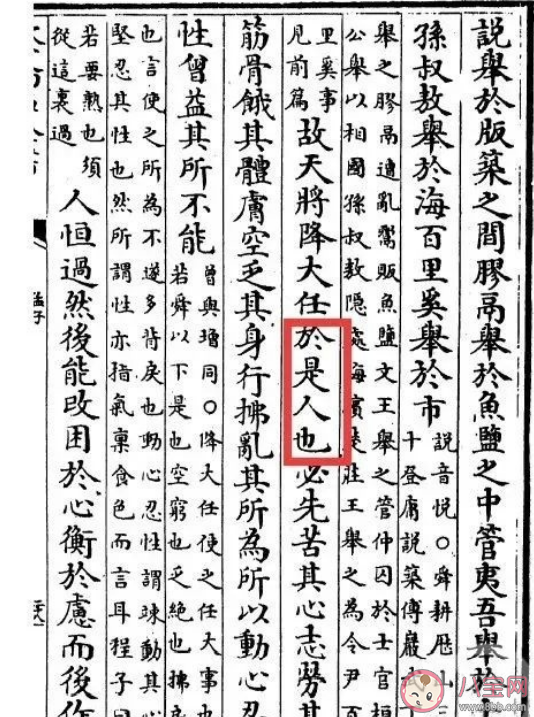 說舉於版築之間膠鬲舉於魚鹽之中管夷吾舉於
孫叔敖舉於海百里奚舉於市
說音悅○舜耕歷
十登庸說築傅巖
舉之膠鬲遭亂鬻販魚鹽文王舉之管仲囚於士官桓
公舉以相國孫叔敖隱處海濱楚莊王舉之為令尹百
里奚事
見前篇
故天將降大任於是人也必先苦其心志勞其
筋骨餓其體膚空乏其身行拂亂其所為所以動心忍
性曾益其所不能
曾與增同○降大任使之任大事
若舜以下是也空窮也乏絕也拂戾
也言使之所為不遂多背戾也動心忍性謂竦動其心
堅忍其性也然所謂性亦指氣稟食色而言耳程子曰
若要熟也須
從這裏過
人恒過然後能改困於心衡於慮而後作
八宝网